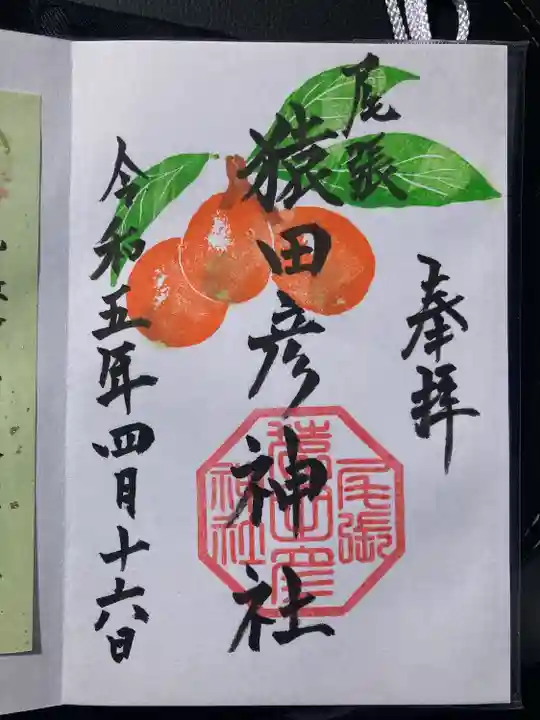 奉拝
尾張
猿田彦神社
尾張
猿田彦
神社
令和五年四月十六日